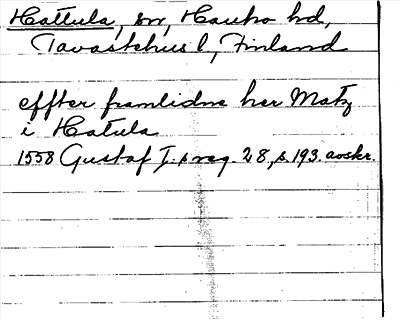 Hattula, sn, Hauho hd,
Tavastehus l, Finland
effter framlidne her Matz
i Hatula
1558 Gustaf I:s reg. 28, s. 193. avskr.